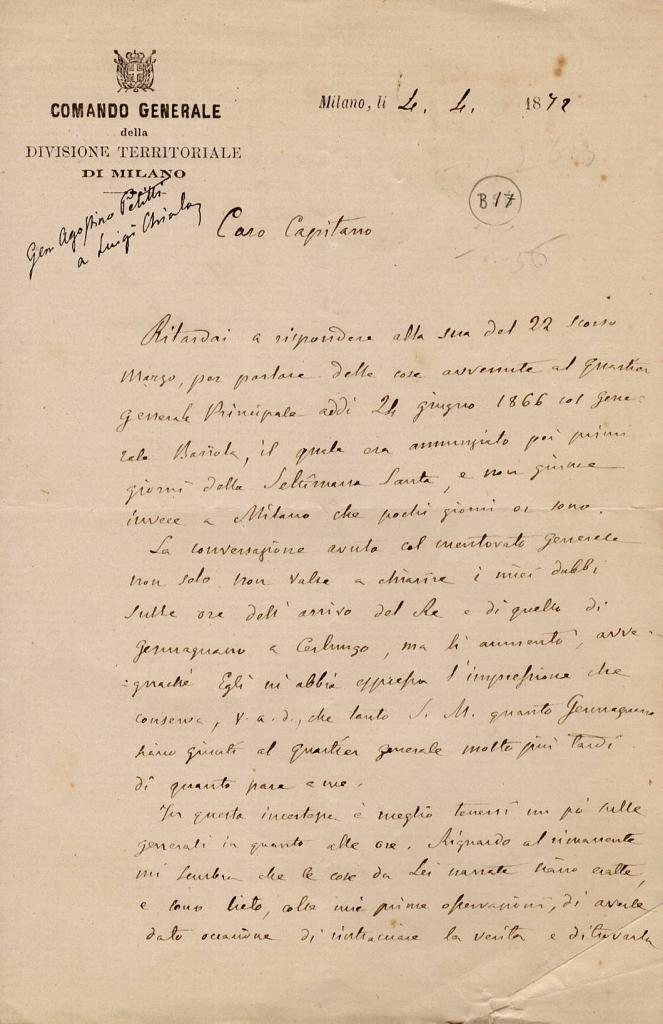 COMANDO GENERALE
della
DIVISIONE TERRITORIALE
DI MILANO
Milano, li 4. 4. 1872
B17
Gen Agostino Petitti
a Luigi Chiala
Caro Capitano
Ritardai a rispondere alla sua del 22 scorso
Marzo, per parlare delle cose avvenute al Quartier
Generale Principale addì 24 giugno 1866 col Gene=
rale Bariola, il quale era annunziato pei primi
giorni della Settimana Santa, e non giunse
invece a Milano che pochi giorni or sono.
La conversazione avuta col mentovato Generale
non solo non valse a chiarire i miei dubbi
sulle ore dell'arrivo del Re e di quello di
Gennagnano a Cerlungo, ma li aumentò, avve-
=gnaché Egli mi abbia espressa l'impressione che
conserva, v. a. d., che tanto S. M. quanto Gennagnano
siano giunti al quartier generale molto più tardi
di quanto pare a me.
In questa incertezza è meglio tenersi un pò sulle
generali in quanto alle ore. Riguardo al rimanente
mi sembra che le cose da Lei narrate siano esatte,
e sono lieto, colle mie prime osservazioni, di averle
dato occasione di rintracciare la verità e di trovarla